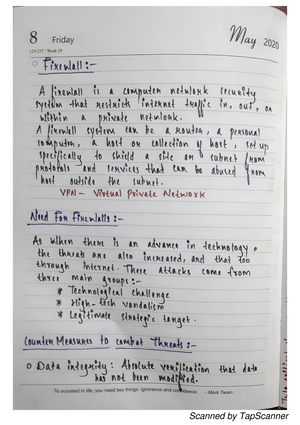 8 Friday
May 2020
129-237 / Week 19
Firewall :-
A firewall is a computer network security
system that restricts internet traffic in, out, or
within a private network.
A firewall system can be a router, a personal
computer, a host or collection of host, set up
specifically to shield a site or subnet from
protocols and services that can be abused from
host outside the subnet.
VPN - Virtual Private Network
Need For Firewalls :-
As When there is an advance in technology
the threats are also increased, and that too
through internet. These attacks come from
three main groups :-
* Technological challenge
* High-tech vandalism
* Legitimate strategic target.
Counter Measures to combat Threats :-
Data integrity : Absolute verification that data
has not been modified.
To succeed in life, you need two things: ignorance and confidence - Mark Twain
Scanned by TapScanner